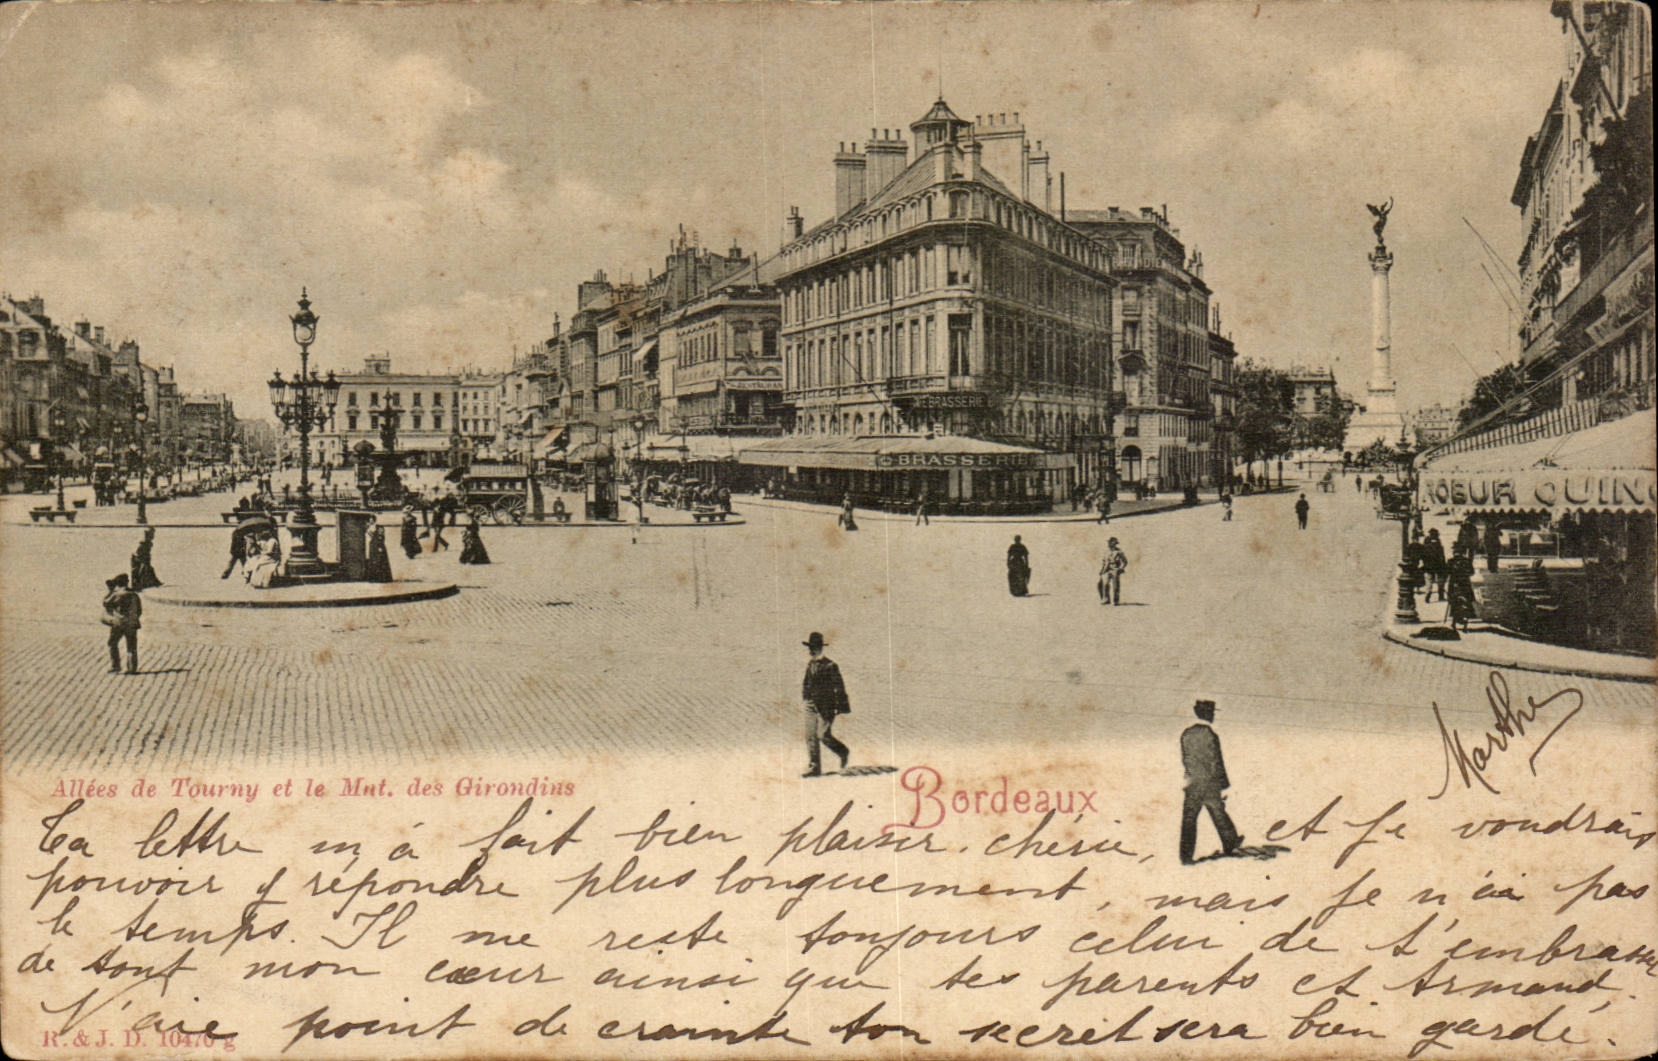 RESTAURANT
BRASSERIE
BRASSERIE
Allées de Tourny et le Mnt. des Girondins
Bordeaux
Marthe
Ta lettre m'a fait bien plaisir, chérie, et je voudrais
pouvoir y répondre plus longuement, mais je n'ai pas
le temps. Il me reste toujours celui de t'embrasser
de tout mon cœur ainsi que tes parents et Armand.
N'aie point de crainte ton secret sera bien gardé.
R. & J. D. 10470 g